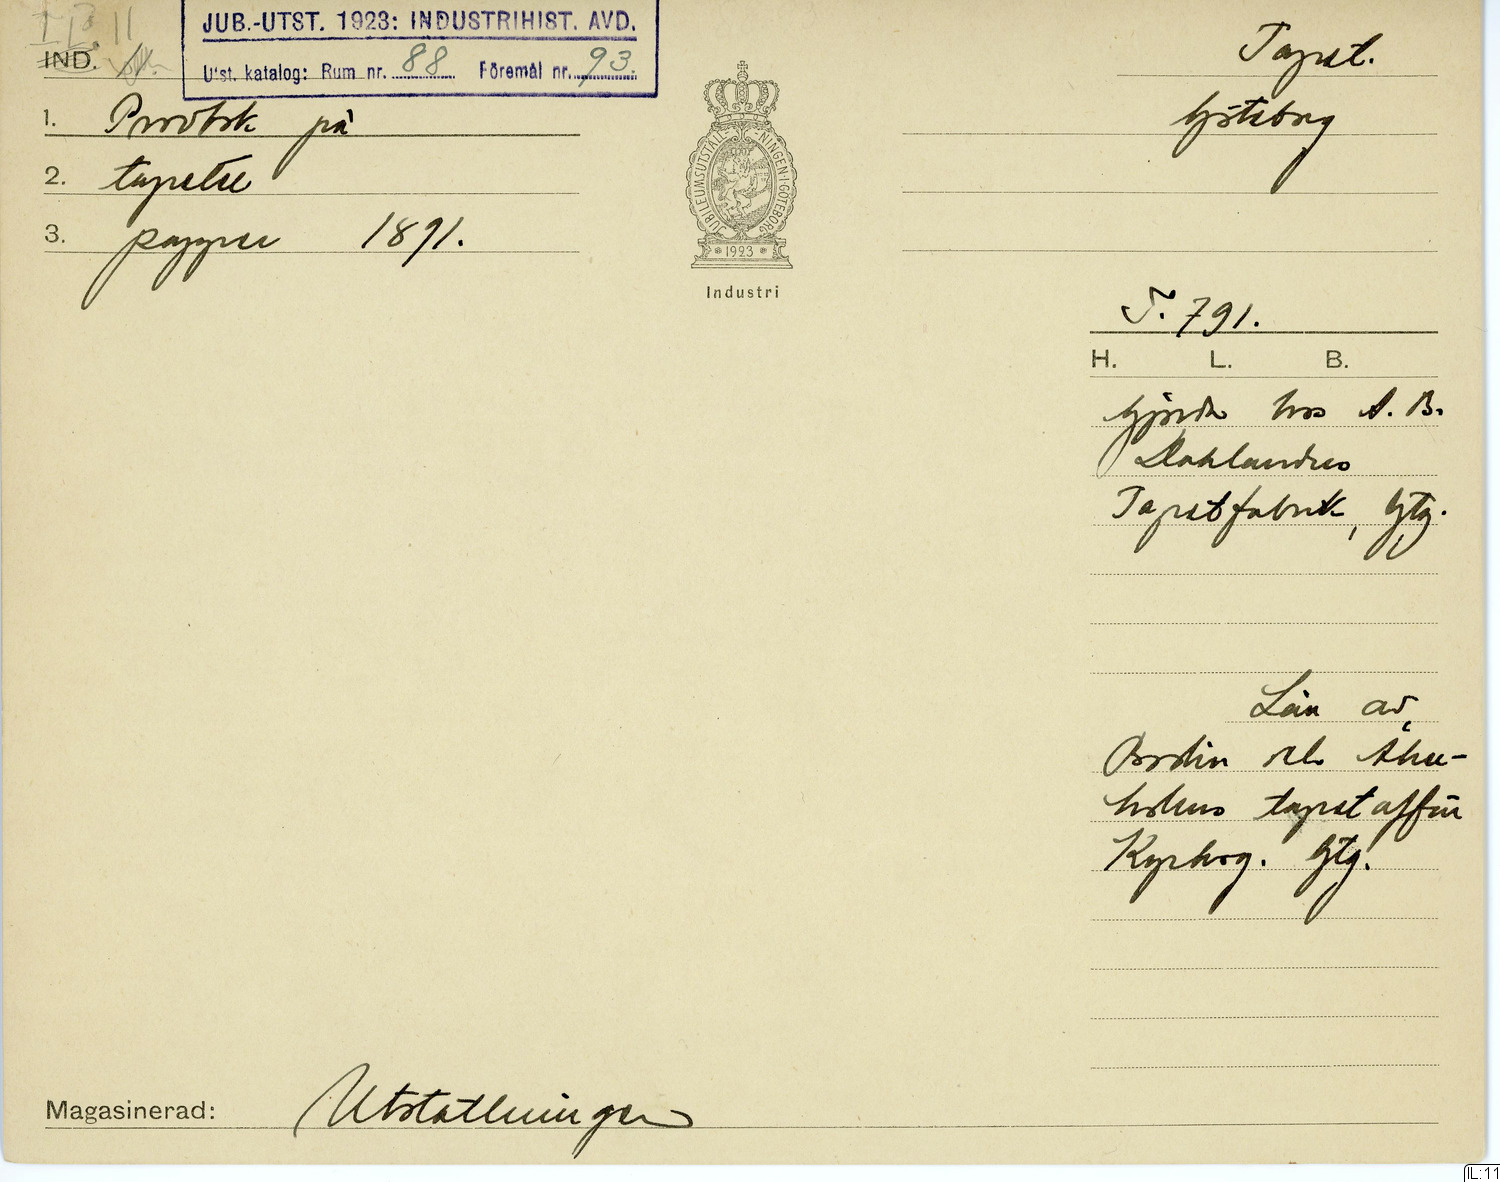 I B. 11
JUB.-UTST. 1923: INDUSTRIHIST. AVD.
IND.
Utst. katalog: Rum nr. 88 Föremål nr. 93.
Tapet.
1. Provbok på
Göteborg
2. tapetse
3. papper 1891.
JUBILEUMSUTSTÄLLNINGEN I GÖTEBORG
1923
Industri
T. 791.
H. L. B.
Gjorda hos A. B.
Dahlanders
Tapetfabrik, Gtg.
Lån av
Bodin och Åker-
holms tapetaffär
Kyrkog. Gtg.
Magasinerad: Utställningen
IL:11